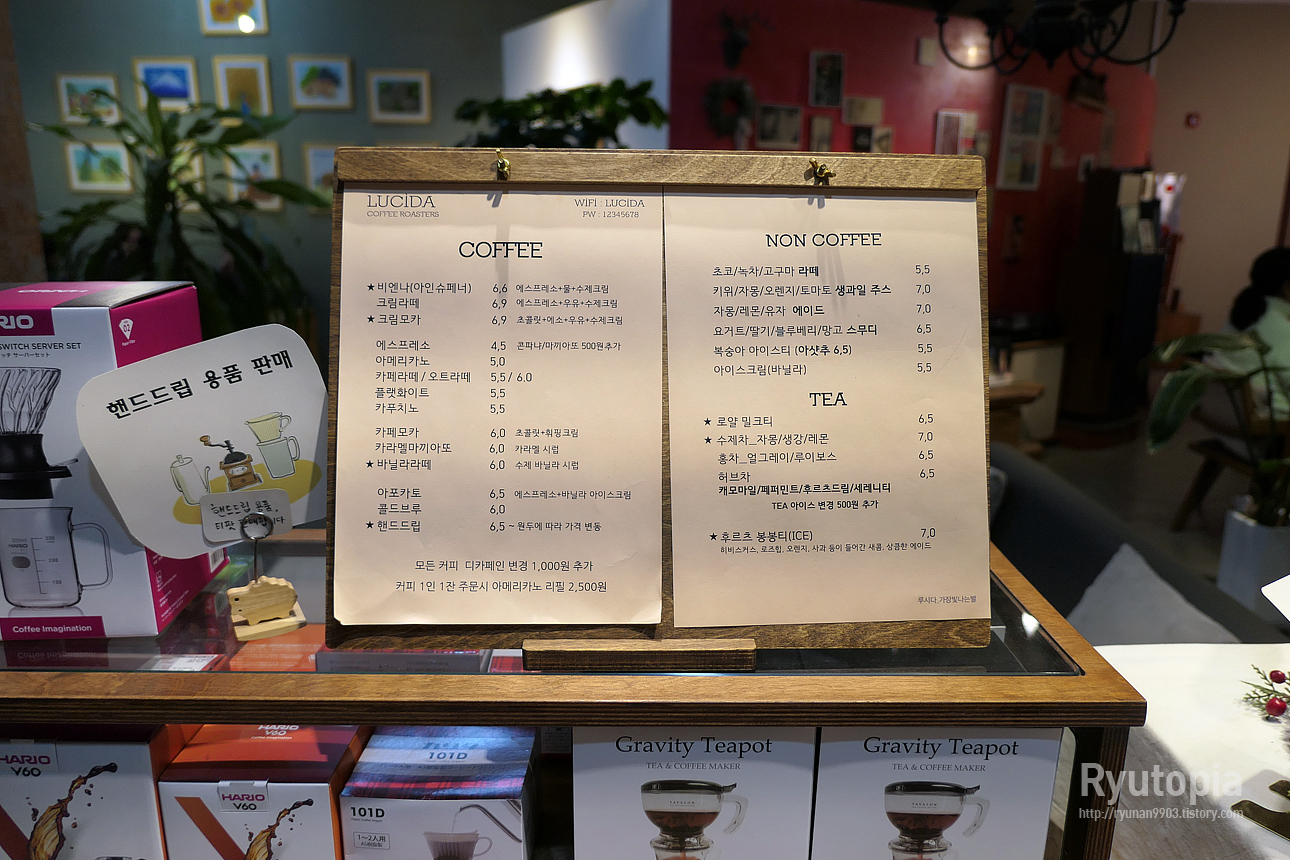 LUCIDA
COFFEE ROASTERS
WIFI : LUCIDA
PW : 12345678
COFFEE
★비엔나(아인슈페너) 6,6 에스프레소+물+수제크림
크림라떼 6,9 에스프레소+우유+수제크림
★크림모카 6,9 초콜릿+에소+우유+수제크림
에스프레소 4,5 콘파냐/마끼아또 500원추가
아메리카노 5,0
카페라떼 / 오트라떼 5,5 / 6.0
플랫화이트 5,5
카푸치노 5,5
카페모카 6,0 초콜릿+휘핑크림
카라멜마끼아또 6,0 카라멜 시럽
★바닐라라떼 6,0 수제 바닐라 시럽
아포카토 6,5 에스프레소+바닐라 아이스크림
콜드브루 6,0
★핸드드립 6,5 ~ 원두에 따라 가격 변동
모든 커피 디카페인 변경 1,000원 추가
커피 1인 1잔 주문시 아메리카노 리필 2,500원
NON COFFEE
초코/녹차/고구마 라떼 5,5
키위/자몽/오렌지/토마토 생과일 주스 7,0
자몽/레몬/유자 에이드 7,0
요거트/딸기/블루베리/망고 스무디 6,5
복숭아 아이스티 (아샷추 6,5) 5,5
아이스크림(바닐라) 5,5
TEA
★ 로얄 밀크티 6,5
★ 수제차_자몽/생강/레몬 7,0
홍차_얼그레이/루이보스 6,5
허브차 6,5
캐모마일/페퍼민트/후르츠드림/세레니티
TEA 아이스 변경 500원 추가
★후르츠 봉봉티(ICE) 7,0
히비스커스, 로즈힙, 오렌지, 사과 등이 들어간 새콤, 상큼한 에이드
루시다_가장빛나는별
RIO
SWITCH SERVER SET
HARIO
Coffee Imagination
핸드드립 용품 판매
핸드드립 용품,
티팟 판매합니다
HARIO
V60
HARIO
V60
101D
101D
1~2人用
Gravity Teapot
TEA & COFFEE MAKER
Gravity Teapot
TEA & COFFEE MAKER
Ryutopia
http://ryunan9903.tistory.com